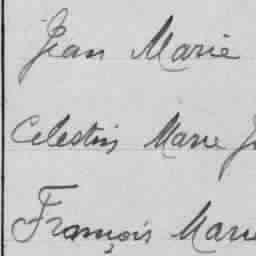 Jean Marie
Celestin Marie
François Marie